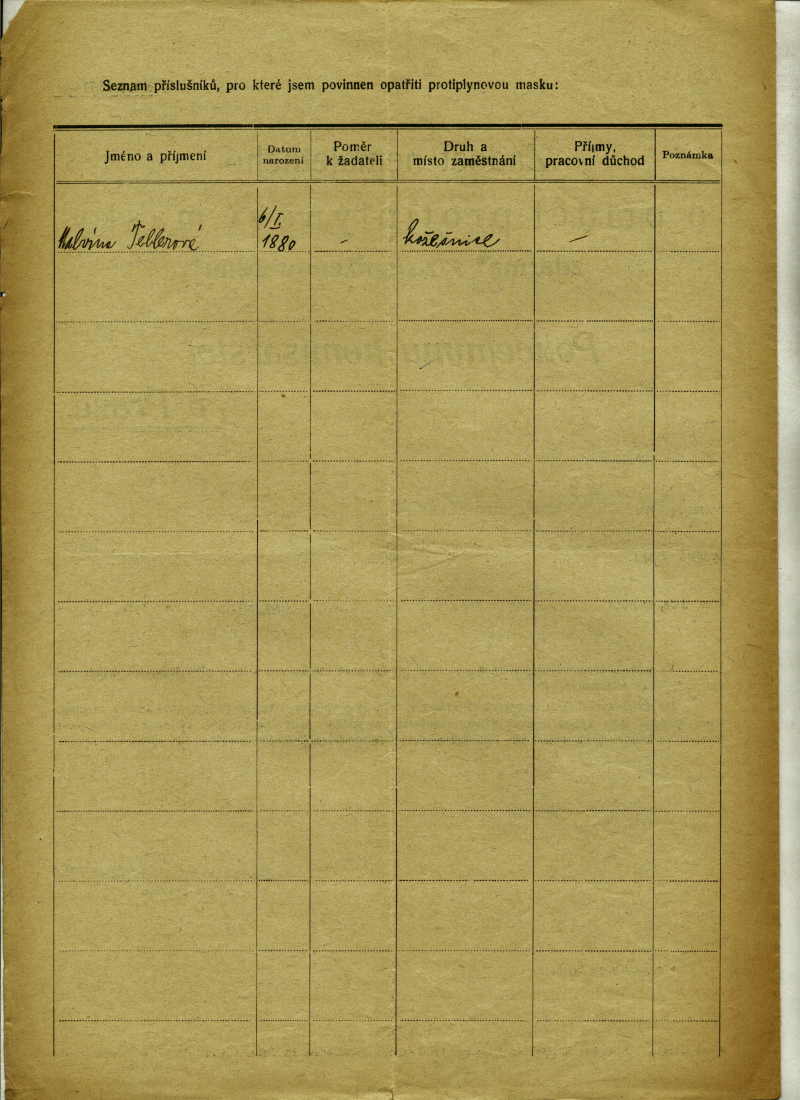 Seznam příslušníků, pro které jsem povinnen opatřiti protiplynovou masku:
Jméno a příjmení
Datum
narození
Poměr
k žadateli
Druh a
místo zaměstnání
Příjmy,
pracovní důchod
Poznámka
Malvína
6/I.
1880
–
–